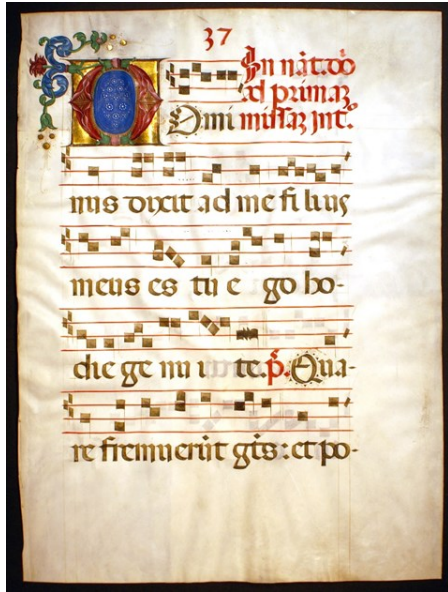 37
In nat. do
ad primaz
Domi missaz int.
nus dixit ad me filius
meus es tu e go ho-
die ge nu i te. p. Qua-
re fremuerut gtes: et po-